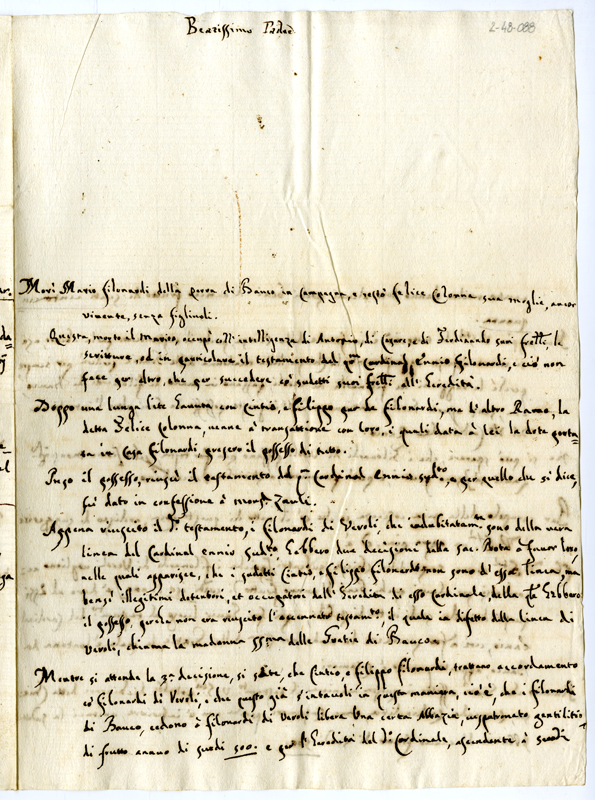 Beatissimo Padre
2-48-088
Morì Mario filonardi della terra di Bauco in Campagna, e restò Felice Colonna sua moglie, ancor
vivente, senza figlioli.
Questa, morto il marito, occupò coll'intelligenza di Antonio, di Cesare, e di Ferdinando suoi frlli, le
scritture, ed in particolare il testamento del qm Cardinal Ennio filonardi, e ciò non
fece per altro, che per succedere co' sudetti suoi frlli all'Eredità.
Doppo una lunga lite hauuta con Cintio, e filippo pur de filonardi, ma d'altro Ramo, la
detta Felice Colonna, uenne à transattione con loro, i quali data à lei la dote porta=
ta in Casa filonardi, presero il possesso di tutto.
Preso il possesso, riuscì il testamento del qm Cardinal Ennio sudto, e per quello che si dice,
fù dato in confessione à monsr Zauli.
Appena riuscito il do testamento, i filonardi di Veroli, che indubitatamte sono della uera
linea del Cardinal ennio sudto, hebbero due decisioni della Sac. Rota à fauor loro,
nelle quali apparisce, che i sudetti Cintio, e filippo filonardi non sono d'essa linea, ma
bensì illegitimi detentori, et occupatori dell'Eredità di esso Cardinale, della hebbero
il possesso, perche non era riuscito l'accennato testamto, il quale in difetto della linea di
Veroli, chiama la madonna SSma delle Gratie di Bauco.
Mentre si attende la 3a decisione, si sente, che Cintio, e filippo filonardi, trattano accordamento
co' filonardi di Veroli, e che questo già s'intauoli in questa maniera, cioè, che i filonardi
di Bauco, cedono à filonardi di Veroli libera una certa Abbazia, iuspatronato gentilitio,
di frutto annuo di scudi 500. e per l'Eredità del do Cardinale, ascendente à scudi